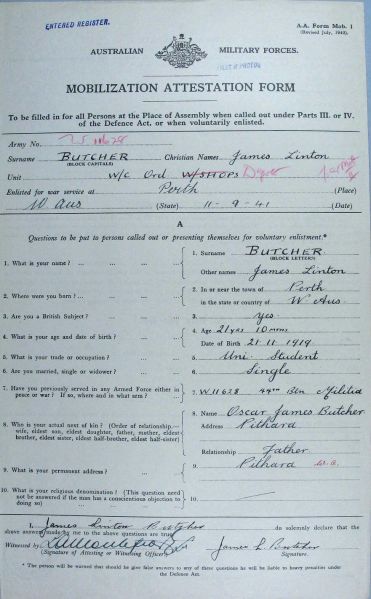 ENTERED REGISTER.
A.A. Form Mob. 1
(Revised July, 1940).
AUSTRALIAN MILITARY FORCES.
MOBILIZATION ATTESTATION FORM
To be filled in for all Persons at the Place of Assembly when called out under Parts III. or IV.
of the Defence Act, or when voluntarily enlisted.
Army No.
Surname BUTCHER Christian Names James Linton
(BLOCK CAPITALS)
Unit W/C Ord W/SHOPS Depot
Enlisted for war service at Perth (Place)
W. Aus (State) 11-9-41 (Date)
A
Questions to be put to persons called out or presenting themselves for voluntary enlistment.*
1. What is your name? ... 1. Surname BUTCHER
(BLOCK LETTERS)
Other names James Linton
2. Where were you born? ... 2. In or near the town of Perth
in the state or country of W Aus
3. Are you a British Subject? ... 3. yes
4. What is your age and date of birth? ... 4. Age 21 yrs 10 mths
Date of Birth 21.11.1919
5. What is your trade or occupation? ... 5. Uni. Student
6. Are you married, single or widower? ... 6. Single
7. Have you previously served in any Armed Force either in
peace or war? If so, where and in what arm? ... 7. W11628 44th Btn Militia
8. Who is your actual next of kin? (Order of relationship,—
wife, eldest son, eldest daughter, father, mother, eldest
brother, eldest sister, eldest half-brother, eldest half-sister)
8. Name Oscar James Butcher
Address Pithara
Relationship Father
9. What is your permanent address? ... 9. Pithara W.A.
10. What is your religious denomination? (This question need
not be answered if the man has a conscientious objection to
doing so) ... 10.
I, James Linton Butcher do solemnly declare that the
above answers made by me to the above questions are true.
Witnessed by
(Signature of Attesting or Witnessing Officer). James L. Butcher
Signature.
* The person will be warned that should he give false answers to any of these questions he will be liable to heavy penalties under
the Defence Act.